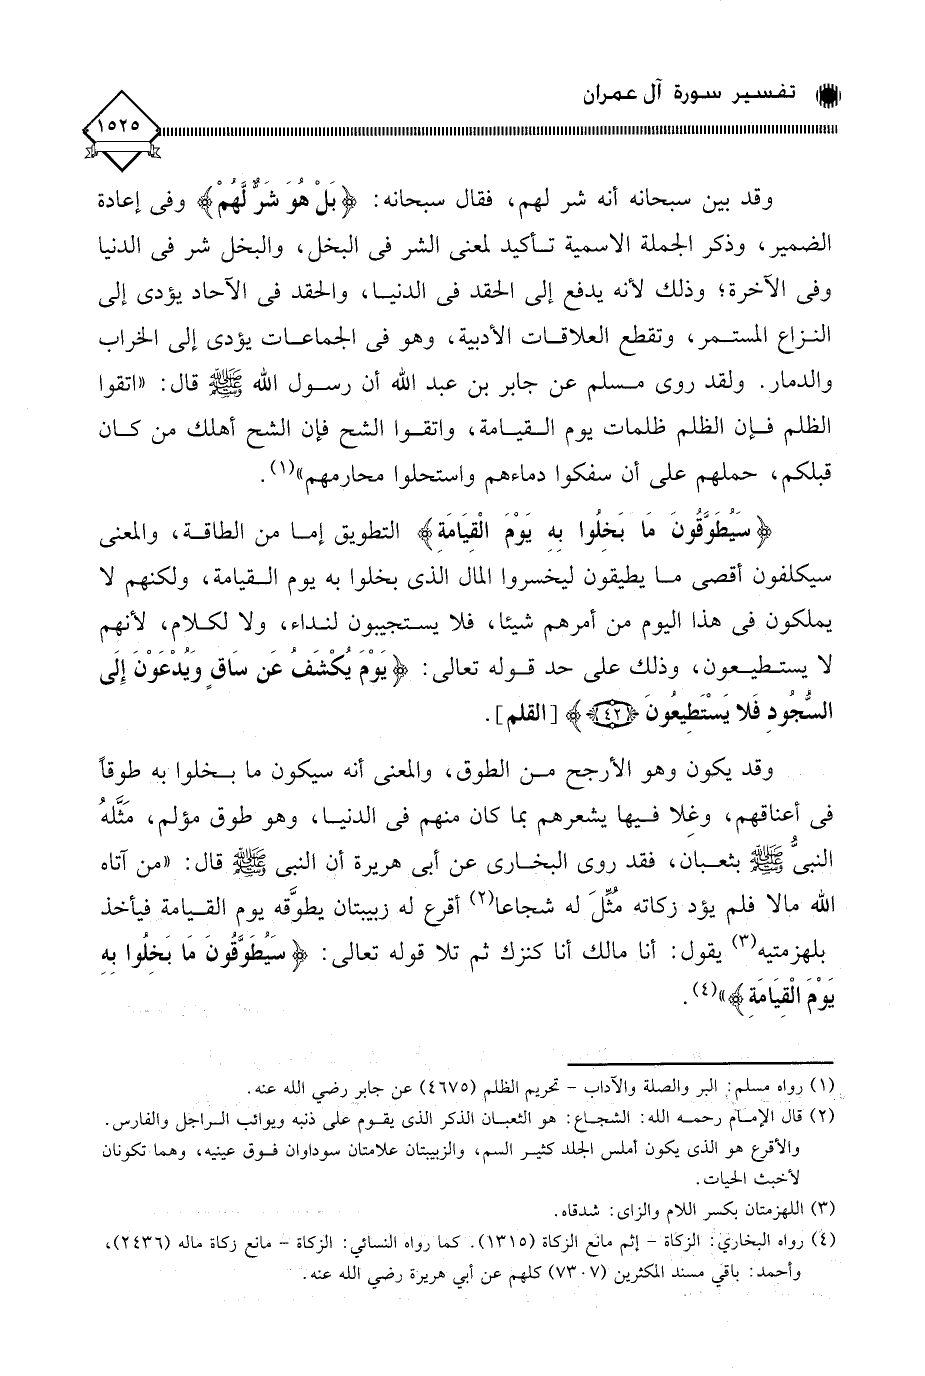 تفسير سورة آل عمران
١٥٢٥
وقد بين سبحانه أنه شر لهم، فقال سبحانه: ﴿بَلْ هُوَ شَرٌّ لَّهُمْ﴾ وفى إعادة
الضمير، وذكر الجملة الاسمية تأكيد لمعنى الشر فى البخل، والبخل شر فى الدنيا
وفى الآخرة؛ وذلك لأنه يدفع إلى الحقد فى الدنيا، والحقد فى الآحاد يؤدى إلى
النزاع المستمر، وتقطع العلاقات الأدبية، وهو فى الجماعات يؤدى إلى الخراب
والدمار. ولقد روى مسلم عن جابر بن عبد الله أن رسول الله ﷺ قال: «اتقوا
الظلم فإن الظلم ظلمات يوم القيامة، واتقوا الشح فإن الشح أهلك من كان
قبلكم، حملهم على أن سفكوا دماءهم واستحلوا محارمهم»(١).
﴿سَيُطَوَّقُونَ مَا بَخِلُوا بِهِ يَوْمَ الْقِيَامَةِ﴾ التطويق إما من الطاقة، والمعنى
سيكلفون أقصى ما يطيقون ليخسروا المال الذى بخلوا به يوم القيامة، ولكنهم لا
يملكون فى هذا اليوم من أمرهم شيئا، فلا يستجيبون لنداء، ولا لكلام، لأنهم
لا يستطيعون، وذلك على حد قوله تعالى: ﴿يَوْمَ يُكْشَفُ عَن سَاقٍ وَيُدْعَوْنَ إِلَى
السُّجُودِ فَلا يَسْتَطِيعُونَ ﴿٤٢﴾﴾ [القلم].
وقد يكون وهو الأرجح من الطوق، والمعنى أنه سيكون ما بخلوا به طوقاً
فى أعناقهم، وغلا فيها يشعرهم بما كان منهم فى الدنيا، وهو طوق مؤلم، مَثَّلهُ
النبيُّ ﷺ بثعبان، فقد روى البخارى عن أبى هريرة أن النبى ﷺ قال: «من آتاه
الله مالا فلم يؤد زكاته مُثِّلَ له شجاعا(٢) أقرع له زبيبتان يطوَّقه يوم القيامة فيأخذ
بلهزمتيه(٣) يقول: أنا مالك أنا كنزك ثم تلا قوله تعالى: ﴿سَيُطَوَّقُونَ مَا بَخِلُوا بِهِ
يَوْمَ الْقِيَامَةِ﴾»(٤).
(١) رواه مسلم: البر والصلة والآداب - تحريم الظلم (٤٦٧٥) عن جابر رضي الله عنه.
(٢) قال الإمام رحمه الله: الشجاع: هو الثعبان الذكر الذى يقوم على ذنبه ويواثب الراجل والفارس.
والأقرع هو الذى يكون أملس الجلد كثير السم، والزبيبتان علامتان سوداوان فوق عينيه، وهما تكونان
لأخبث الحيات.
(٣) اللهزمتان بكسر اللام والزاى: شدقاه.
(٤) رواه البخاري: الزكاة - إثم مانع الزكاة (١٣١٥). كما رواه النسائي: الزكاة - مانع زكاة ماله (٢٤٣٦)،
وأحمد: باقي مسند المكثرين (٧٣٠٧) كلهم عن أبي هريرة رضي الله عنه.